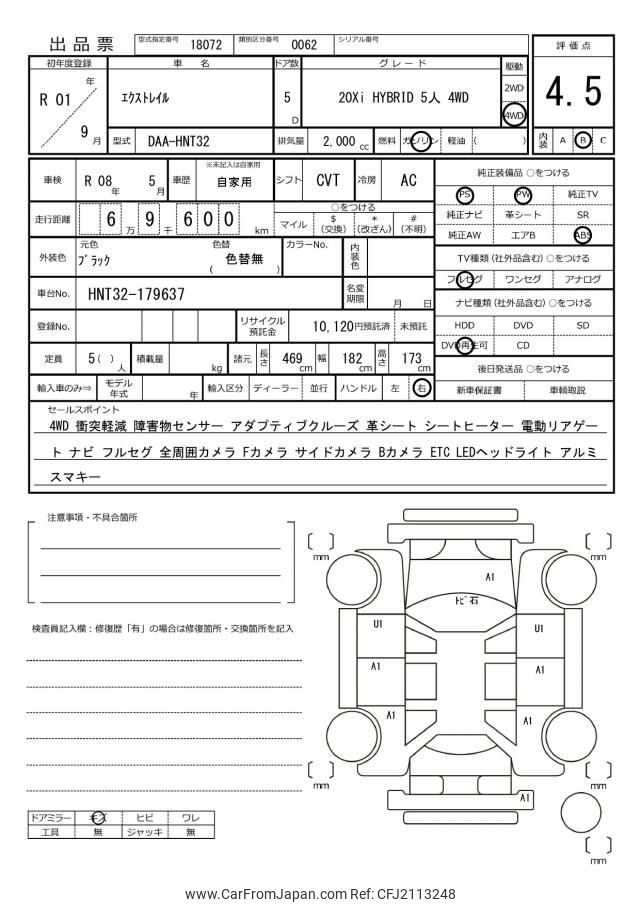 出品票
型式指定番号 18072 類別区分番号 0062 シリアル番号
評価点
4.5
内装 A B C
初年度登録 車名 ドア数 グレード 駆動
R 01 年 9 月
ｴｸｽﾄﾚｲﾙ
5 D
20Xi HYBRID 5人 4WD
2WD
4WD
型式 DAA-HNT32 排気量 2,000 cc 燃料 ガソリン 軽油 ( )
車検 R 08 年 5 月 車歴 ※未記入は自家用 自家用 シフト CVT 冷房 AC
走行距離 6 9 万 千 6 0 0 km
○をつける
マイル $(交換) *(改ざん) #(不明)
外装色 元色 ﾌﾞﾗｯｸ 色替 ( 色替無 ) カラーNo. 内装色
車台No. HNT32-179637 名変期限 月 日
登録No. リサイクル預託金 10,120円預託済 未預託
定員 5 ( ) 人 積載量 kg 諸元 長さ 469 cm 幅 182 cm 高さ 173 cm
輸入車のみ⇒ モデル年式 年 輸入区分 ディーラー 並行 ハンドル 左 右
純正装備品 ○をつける
PS PW 純正TV
純正ナビ 革シート SR
純正AW エアB ABS
TV種類 (社外品含む) ○をつける
フルセグ ワンセグ アナログ
ナビ種類 (社外品含む) ○をつける
HDD DVD SD
DVD再生可 CD
後日発送品 ○をつける
新車保証書 車輌取説
セールスポイント
4WD 衝突軽減 障害物センサー アダプティブクルーズ 革シート シートヒーター 電動リアゲー
ト ナビ フルセグ 全周囲カメラ Fカメラ サイドカメラ Bカメラ ETC LEDヘッドライト アルミ
スマキー
注意事項・不具合箇所
検査員記入欄：修復歴「有」の場合は修復箇所・交換箇所を記入
ドアミラー キズ ヒビ ワレ
工具 無 ジャッキ 無
mm mm
A1
ﾄﾋﾞ石
U1 U1
A1 A1
A1 A1
mm mm
A1
mm
www.CarFromJapan.com Ref: CFJ2113248